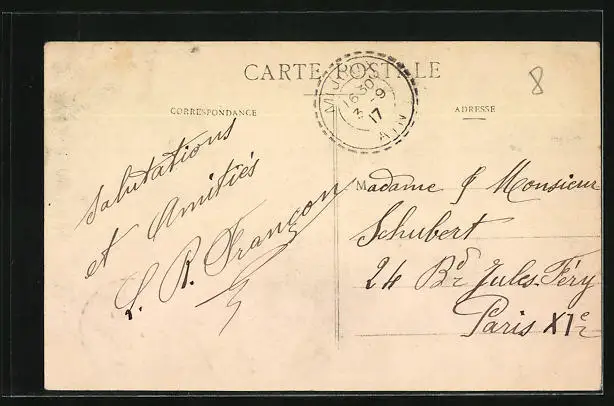 CARTE POSTALE
CORRESPONDANCE
ADRESSE
MIJOUX
16 30
3 - 9
17
AIN
8
Salutations
et Amitiés
L. R. Françon
Madame & Monsieur
Schubert
24 Bd Jules Féry
Paris XIe